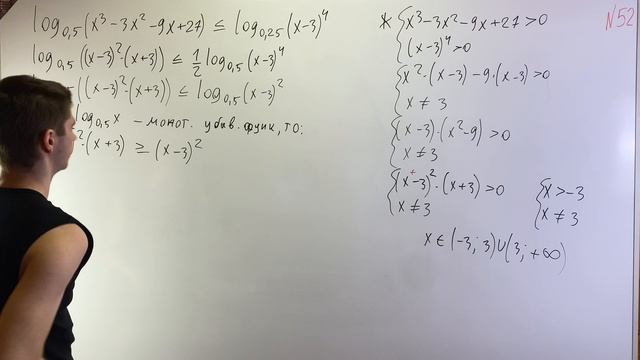 log₀,₅(x³-3x²-9x+27) ≤ log₀,₂₅(x-3)⁴
log₀,₅((x-3)²·(x+3)) ≤ 1/2 log₀,₅(x-3)⁴
((x-3)²·(x+3)) ≤ log₀,₅(x-3)²
log₀,₅x - монот. убыв. функ, то:
²·(x+3) ≥ (x-3)²
* { x³-3x²-9x+27>0
(x-3)⁴>0
{ x²·(x-3)-9·(x-3)>0
x≠3
{ (x-3)·(x²-9)>0
x≠3
{ (x-3)²·(x+3)>0
x≠3
{ x>-3
x≠3
x∈(-3;3)∪(3;+∞)
№52